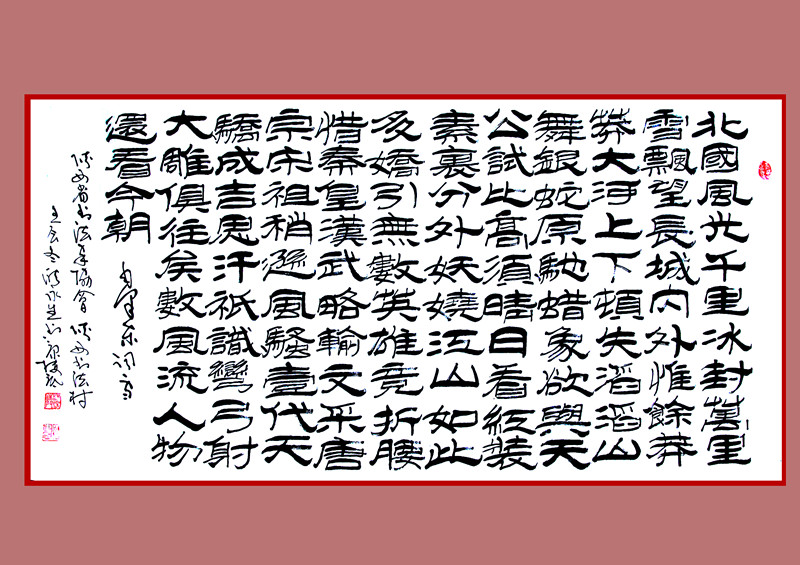 北國風光千里冰封萬里
雪飄望長城内外惟餘莽
莽大河上下頓失滔滔山
舞銀蛇原馳蜡象欲與天
公試比高須晴日看紅裝
素裏分外妖嬈江山如此
多嬌引無數英雄竟折腰
惜秦皇漢武略輸文采唐
宗宋祖稍遜風騷壹代天
驕成吉思汗祇識彎弓射
大雕俱往矣數風流人物
還看今朝
毛澤东词雪
陕西省书法家協會 陕西书法村